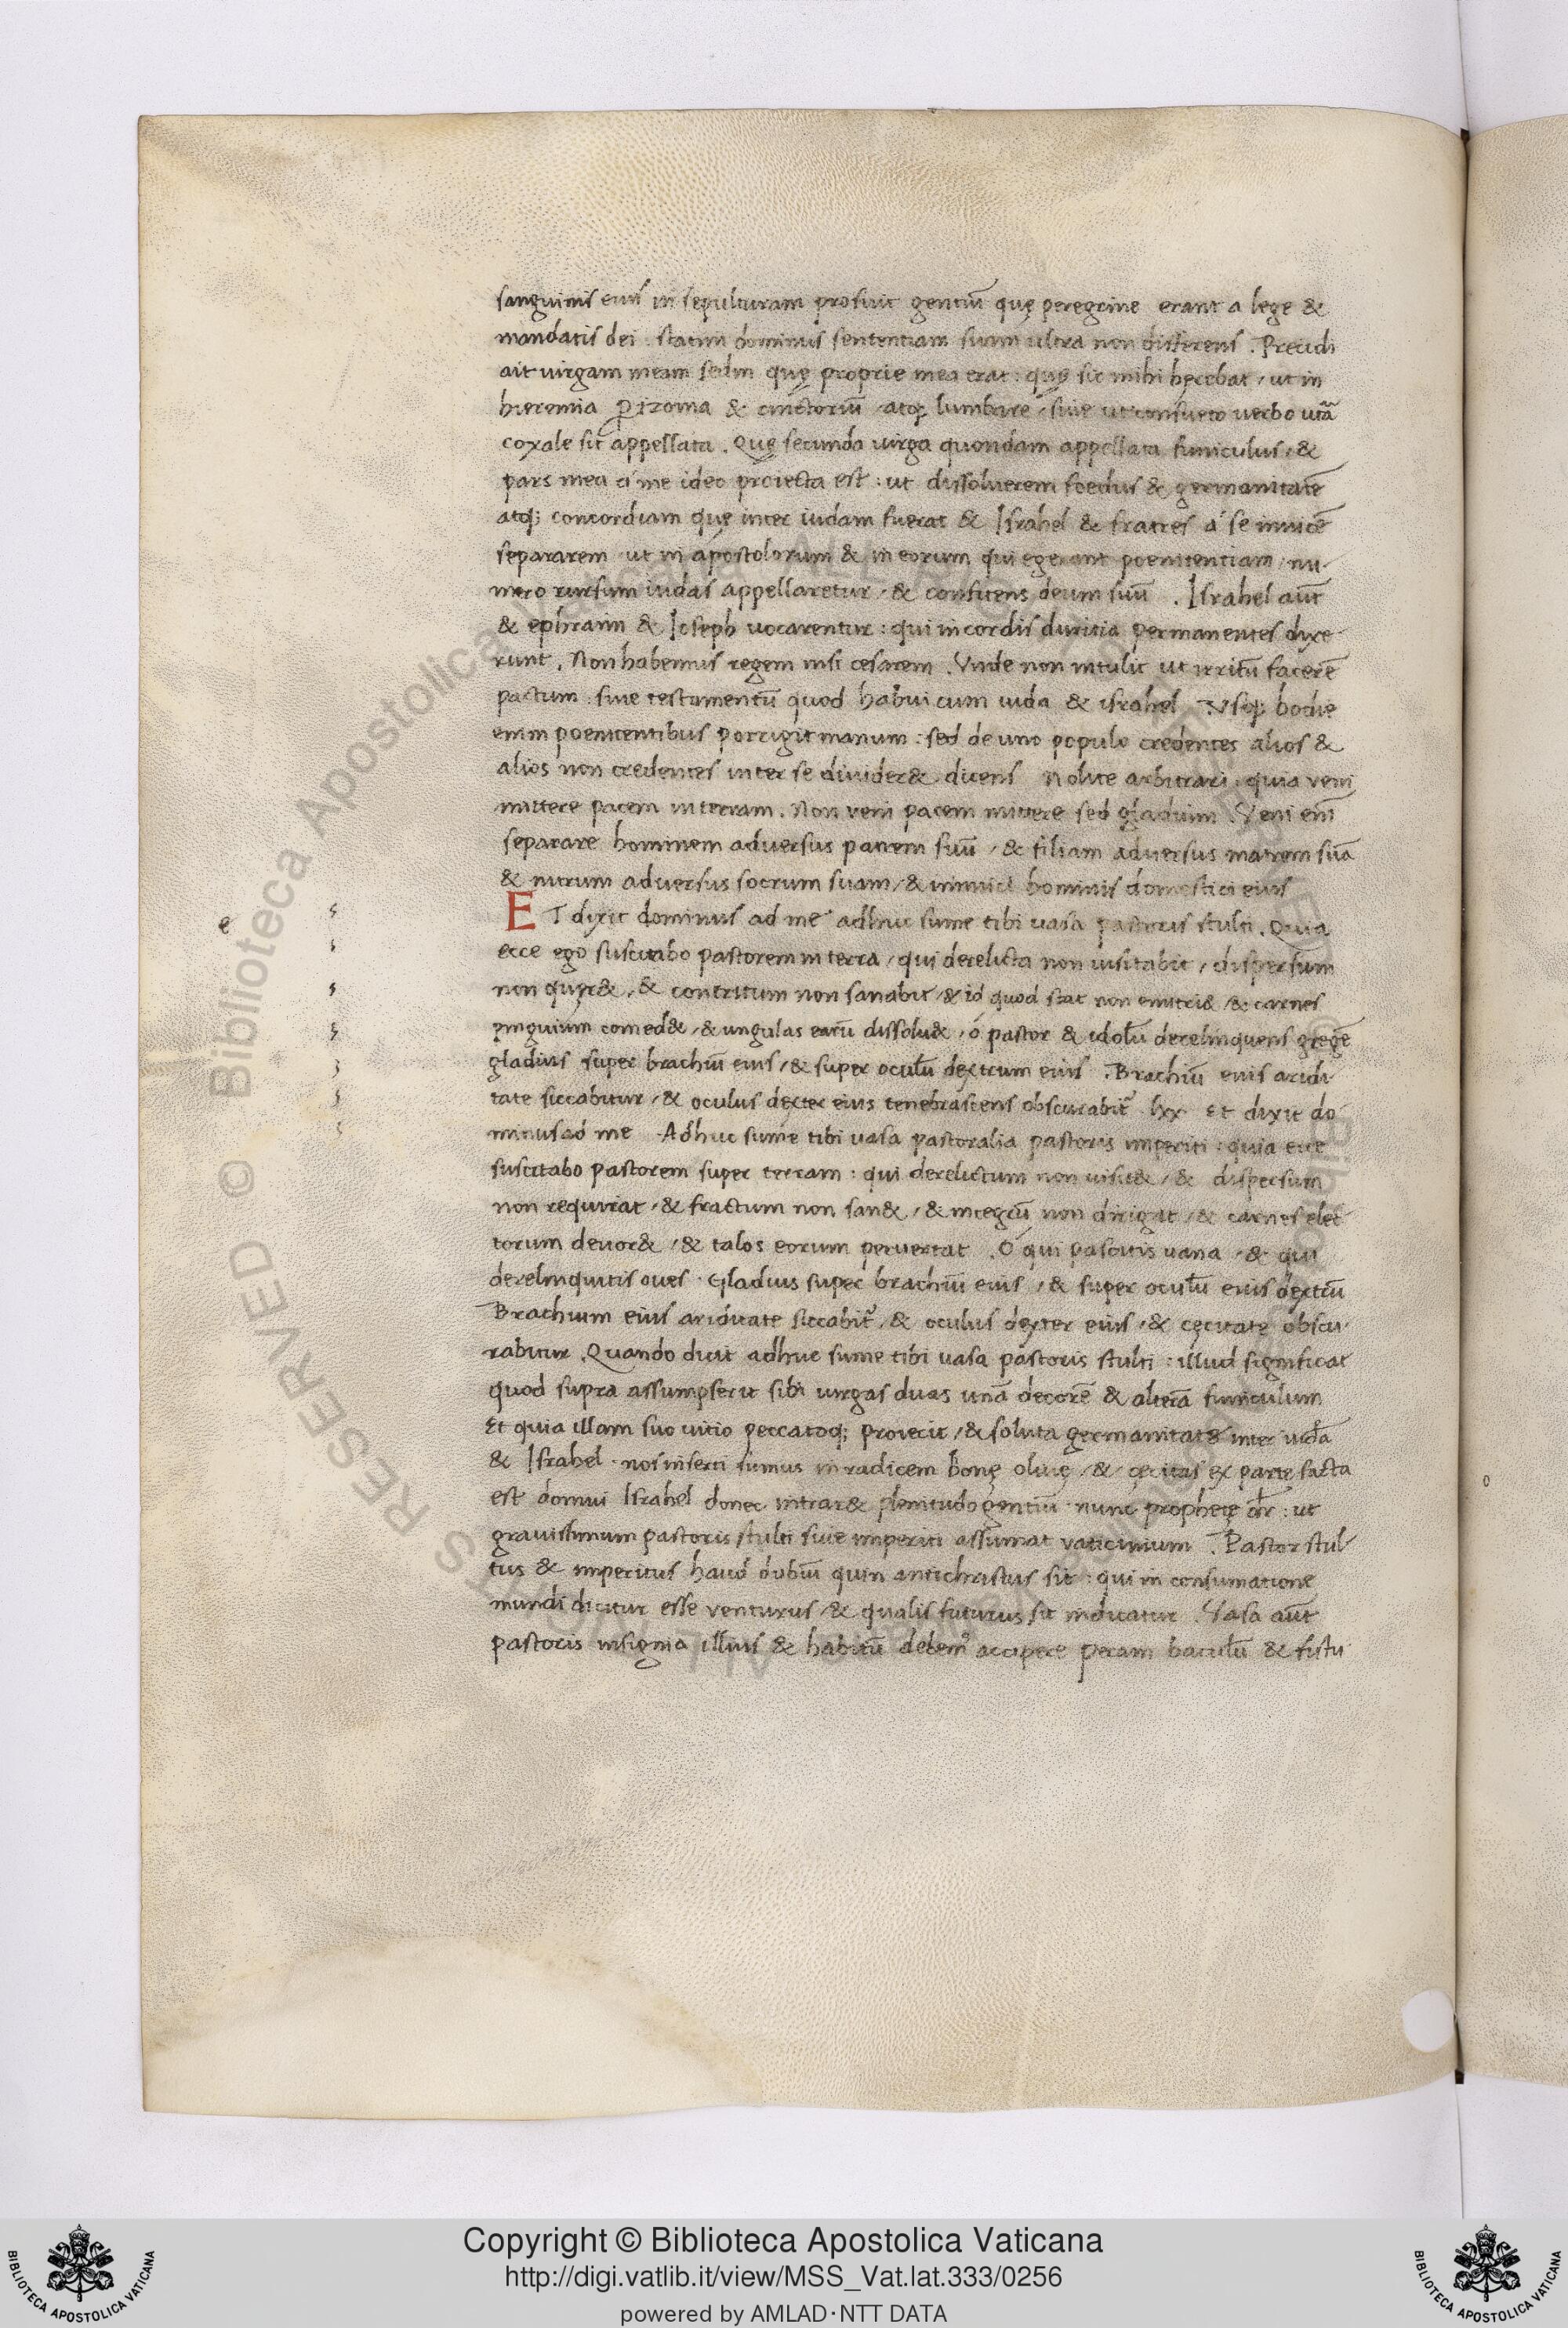 sanguinis eius in sepulturam profuit gentiū quę peregrine erant a lege &
mandatis dei. statim dominus sententiam suam ultra non differens. Precidi
ait virgam meam sedm quę proprie mea erat: quę sic mihi herebat, ut in
hieremia perizoma & cinctoriū atq; lumbare, sive ut consueto verbo utar̄
coxale sit appellata. Quę secunda virga quondam appellata funiculus, &
pars mea á me ideo proiecta est: ut dissolverem foedus & germanitatē
atq; concordiam que inter iudam fuerat & Israhel & fratres á se invicē
separarem ut in apostolorum & in eorum qui egerant poenitentiam, nu-
mero rursum iudas appellaretur, & confitens deum suū. Israhel aūt
& ephraim & Ioseph vocarentur: qui in cordis duritia permanentes dixe-
runt. Non habemus regem nisi cesarem. Unde non intulit ut irritū facerē
pactum. sive testamentū quod habui cum iuda & israhel. Usq; hodie
enim poenitentibus porrigit manum: sed de uno populo credentes alios &
alios non credentes inter se divider& dicens Nolite arbitrari, quia veni
mittere pacem in terram. Non veni pacem mittere sed gladium. Veni enī
separare hominem adversus patrem suū, & filiam adversus matrem suā
& nurum adversus socrum suam, & inimici hominis domestici eius
e
ET dixit dominus ad me adhuc sume tibi vasa pastoris stulti. Quia
ecce ego suscitabo pastorem in terra, qui derelicta non visitabit, dispersum
non quęr&, & contritum non sanabit, & id quod stat non enutri&, & carnes
pinguium comed&, & ungulas earū dissolu&, ó pastor & idolū derelinquens gregē
gladius super brachiū eius, & super oculū dextrum eius. Brachiū eius aridi-
tate siccabitur, & oculus dexter eius tenebrascens obscurabit᷑. lxx. Et dixit do-
minus ad me. Adhuc sume tibi vasa pastoralia pastoris imperiti: quia ecce
suscitabo pastorem super terram: qui derelictum non visit&, & dispersum
non requirat, & fractum non san&, & integrū non dirigat, & carnes elec-
torum devor&, & talos eorum pervertat. Ó qui pascitis vana, & qui
derelinquitis oves. Gladius super brachiū eius, & super oculū eius dextrū
Brachium eius ariditate siccabit᷑, & oculus dexter eius, & cęcitate obscu-
rabitur. Quando dicit adhuc sume tibi vasa pastoris stulti: illud significat
quod supra assumpserit sibi virgas duas unā decorē & alterā funiculum
Et quia illam suo vitio peccatoq; proiecit, & soluta germanitate inter iudā
& Israhel. nos inserti sumus in radicem bonę olivę, & cęcitas ex parte facta
est domui Israhel donec intrar& plenitudo gentiū. nunc prophetę dr̄: ut
gravissimum pastoris stulti sive imperiti assumat vaticinium. Pastor stul-
tus & imperitus haud dubiū quin antichristus sit: qui in consumatione
mundi dicitur esse venturus, & qualis futurus sit indicatur. Vasa aūt
pastoris insignia illius & habitū debemꝰ accipere peram baculū & fistu-
o
© Biblioteca Apostolica Vaticana
ALL RIGHTS RESERVED
Copyright © Biblioteca Apostolica Vaticana
http://digi.vatlib.it/view/MSS_Vat.lat.333/0256
powered by AMLAD·NTT DATA
BIBLIOTECA APOSTOLICA VATICANA
BIBLIOTECA APOSTOLICA VATICANA